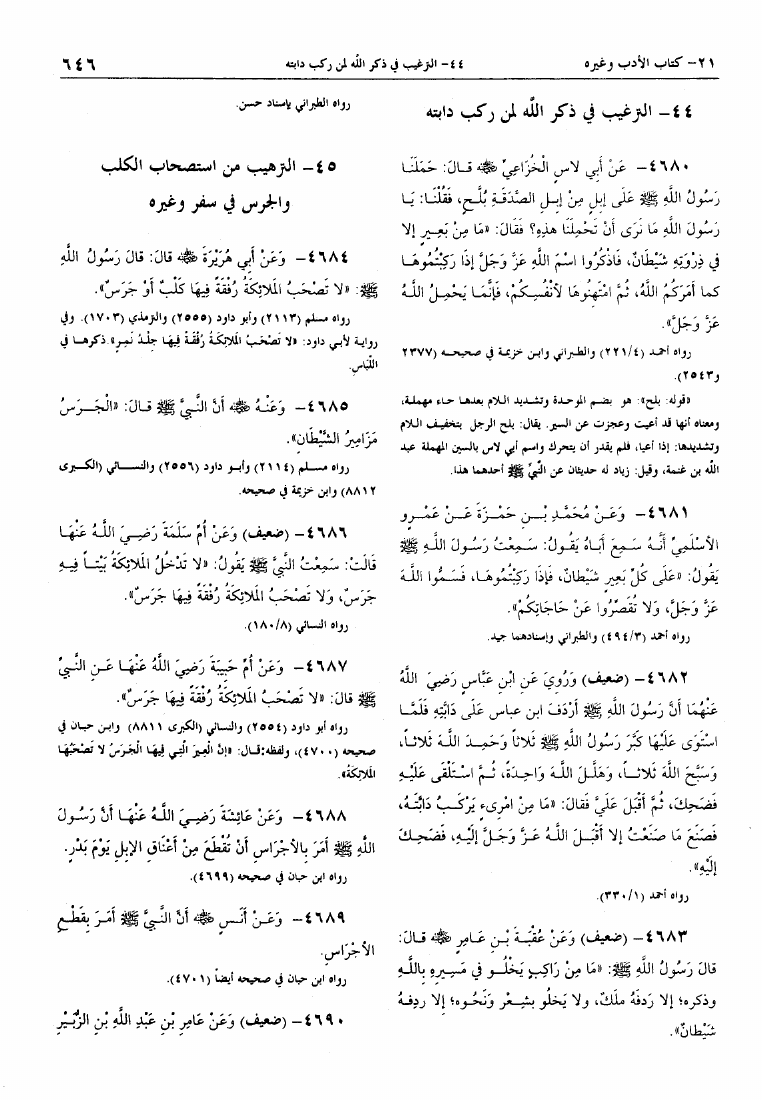 ٢١- كتاب الأدب وغيره ٤٤- الترغيب في ذكر الله لمن ركب دابته ٦٤٦
٤٤- الترغيب في ذكر الله لمن ركب دابته
٤٦٨٠- عَنْ أبي لاسٍ الْخُزَاعِيِّ ﷺ قـالَ: حَمَلَنَـا
رَسُولُ اللهِ ﷺ عَلَى إبلٍ مِنْ إبـلِ الصَّدَقَـةِ بُلَّـحٍ، فَقُلْنَـا: يَـا
رَسُولَ اللهِ مَا نَرَى أَنْ تَحْمِلَنَا هذِهِ؟ فَقَالَ: «مَا مِنْ بَعِـيرٍ إلا
في ذِرْوَتِهِ شَيْطَانٌ، فَاذْكُرُوا اسْمَ اللهِ عَزَّ وَجَلَّ إذَا رَكِبْتُمُوهَـا
كما أمَرَكُم اللهُ، ثُمَّ امْتَهِنُوهَا لأنْفُسِكُمْ، فَإنَّمَـا يَحْمِلُ اللهُ
عَزَّ وَجَلَّ».
رواه أحمد (٢٢١/٤) والطبراني وابن خزيمة في صحيحـه (٢٣٧٧
و٢٥٤٣).
«قوله: بلح»: هو بضـم الموحـدة وتشـديد الـلام بعدهـا حـاء مهملـة،
ومعناه أنها قد أعيت وعجزت عن السير. يقال: بلح الرجل بتخفيـف الـلام
وتشديدها: إذا أعيا، فلم يقدر أن يتحرك واسم أبي لاس بالسين المهملة عبد
الله بن غنمة، وقيل: زياد له حديثان عن النَّبيِّ ﷺ أحدهما هذا.
٤٦٨١- وَعَـنْ مُحَمَّـدِ بْـنِ حَمْـزَةَ عَـنْ عَمْـرِو
الأسْلَمِيِّ أنَّـهُ سَـمِعَ أبَـاهُ يَقُـولُ: سَـمِعْتُ رَسُـولَ اللهِ ﷺ
يَقُولُ: «عَلَى كُلِّ بَعِيرٍ شَيْطَانٌ، فَإذَا رَكِبْتُمُوهَـا، فَسَـمُّوا اللهَ
عَزَّ وَجَلَّ، وَلا تُقَصِّرُوا عَنْ حَاجَاتِكُمْ».
رواه أحمد (٤٩٤/٣) والطبراني وإسنادهما جيد.
٤٦٨٢- (ضعيف) وَرُوِيَ عَنِ ابْنِ عَبَّاسٍ رَضِيَ اللهُ
عَنْهُمَا أنَّ رَسُولَ اللهِ ﷺ أرْدَفَ ابن عباس عَلَى دَابَّتِهِ فَلَمَّـا
اسْتَوَى عَلَيْهَا كَبَّرَ رَسُولُ اللهِ ﷺ ثَلاثاً وَحَمِـدَ اللهَ ثَلاثـاً،
وَسَبَّحَ اللهَ ثَلاثـاً، وَهَلَّـلَ اللهَ وَاحِـدَةً، ثُـمَّ اسْـتَلْقَى عَلَيْـهِ
فَضَحِكَ، ثُمَّ أقْبَلَ عَلَيَّ فَقَالَ: «مَا مِنْ امْرِىءٍ يَرْكَـبُ دَابَّتَـهُ،
فَصَنَعَ مَا صَنَعْتُ إلا أقْبَـلَ اللهُ عَـزَّ وَجَـلَّ إلَيْـهِ، فَضَحِـكَ
إلَيْهِ».
رواه أحمد (٣٣٠/١).
٤٦٨٣- (ضعيف) وَعَنْ عُقْبَـةَ بْـنِ عَـامِرٍ ﷺ قـالَ:
قالَ رَسُولُ اللهِ ﷺ: «مَا مِنْ رَاكِبٍ يَخْلُـو في مَسِـيرِهِ بِاللهِ
وذكرِه؛ إلا رَدفَهُ مَلَكٌ، ولا يَخلُو بشِـعْرٍ وَنَحْـوِه؛ إلا ردِفـهُ
شَيْطَانٌ».
رواه الطبراني بإسناد حسن.
٤٥- الترهيب من استصحاب الكلب
والجرس في سفر وغيره
٤٦٨٤- وَعَنْ أبي هُرَيْرَةَ ﷺ قالَ: قالَ رَسُولُ اللهِ
ﷺ: «لا تَصْحَبُ المَلائِكَةُ رُفْقَةً فِيهَا كَلْبٌ أوْ جَرَسٌ».
رواه مسلم (٢١١٣) وأبو داود (٢٥٥٥) والترمذي (١٧٠٣). وفي
روايـة لأبـي داود: «لا تَصْحَبُ المَلائِكَةُ رُفْقَةً فِيهَا جِلْدُ نَمِـرٍ». ذكرهـا في
اللباس.
٤٦٨٥- وَعَنْـهُ ﷺ أنَّ النَّبِيَّ ﷺ قـالَ: «الْجَـرَسُ
مَزَامِيرُ الشَّيْطَانِ».
رواه مسـلم (٢١١٤) وأبـو داود (٢٥٥٦) والنسـائي (الكـبرى
٨٨١٢) وابن خزيمة في صحيحه.
٤٦٨٦- (ضعيف) وَعَنْ أُمِّ سَلَمَةَ رَضِـيَ اللهُ عَنْهَـا
قَالَتْ: سَمِعْتُ النَّبِيَّ ﷺ يَقُولُ: «لا تَدْخُلُ المَلائِكَةُ بَيْتـاً فِيـهِ
جَرَسٌ، وَلا تَصْحَبُ المَلائِكَةُ رُفْقَةً فِيهَا جَرَسٌ».
رواه النسائي (١٨٠/٨).
٤٦٨٧- وَعَنْ أُمِّ حَبِيبَةَ رَضِيَ اللهُ عَنْهَـا عَـنِ النَّبِيِّ
ﷺ قالَ: «لا تَصْحَبُ المَلائِكَةُ رُفْقَةً فِيهَا جَرَسٌ».
رواه أبو داود (٢٥٥٤) والنسائي (الكبرى ٨٨١١) وابـن حبـان في
صحيحه (٤٧٠٠)، ولفظه:قـال: «إنَّ الْعِيرَ الَّتِي فِيهَا الْجَرَسُ لا تَصْحَبُهَا
المَلائِكَةُ».
٤٦٨٨- وَعَنْ عَائِشَةَ رَضِـيَ اللهُ عَنْهَـا أنَّ رَسُـولَ
اللهِ ﷺ أمَرَ بِالأجْرَاسِ أنْ تُقْطَعَ مِنْ أعْنَاقِ الإبلِ يَوْمَ بَدْرٍ.
رواه ابن حبان في صحيحه (٤٦٩٩).
٤٦٨٩- وَعَـنْ أنَـسٍ ﷺ أنَّ النَّبِيَّ ﷺ أمَـرَ بِقَطْـعِ
الأجْرَاسِ.
رواه ابن حبان في صحيحه أيضاً (٤٧٠١).
٤٦٩٠- (ضعيف) وَعَنْ عَامِرِ بْنِ عَبْدِ اللهِ بْنِ الزُّبَيْرِ